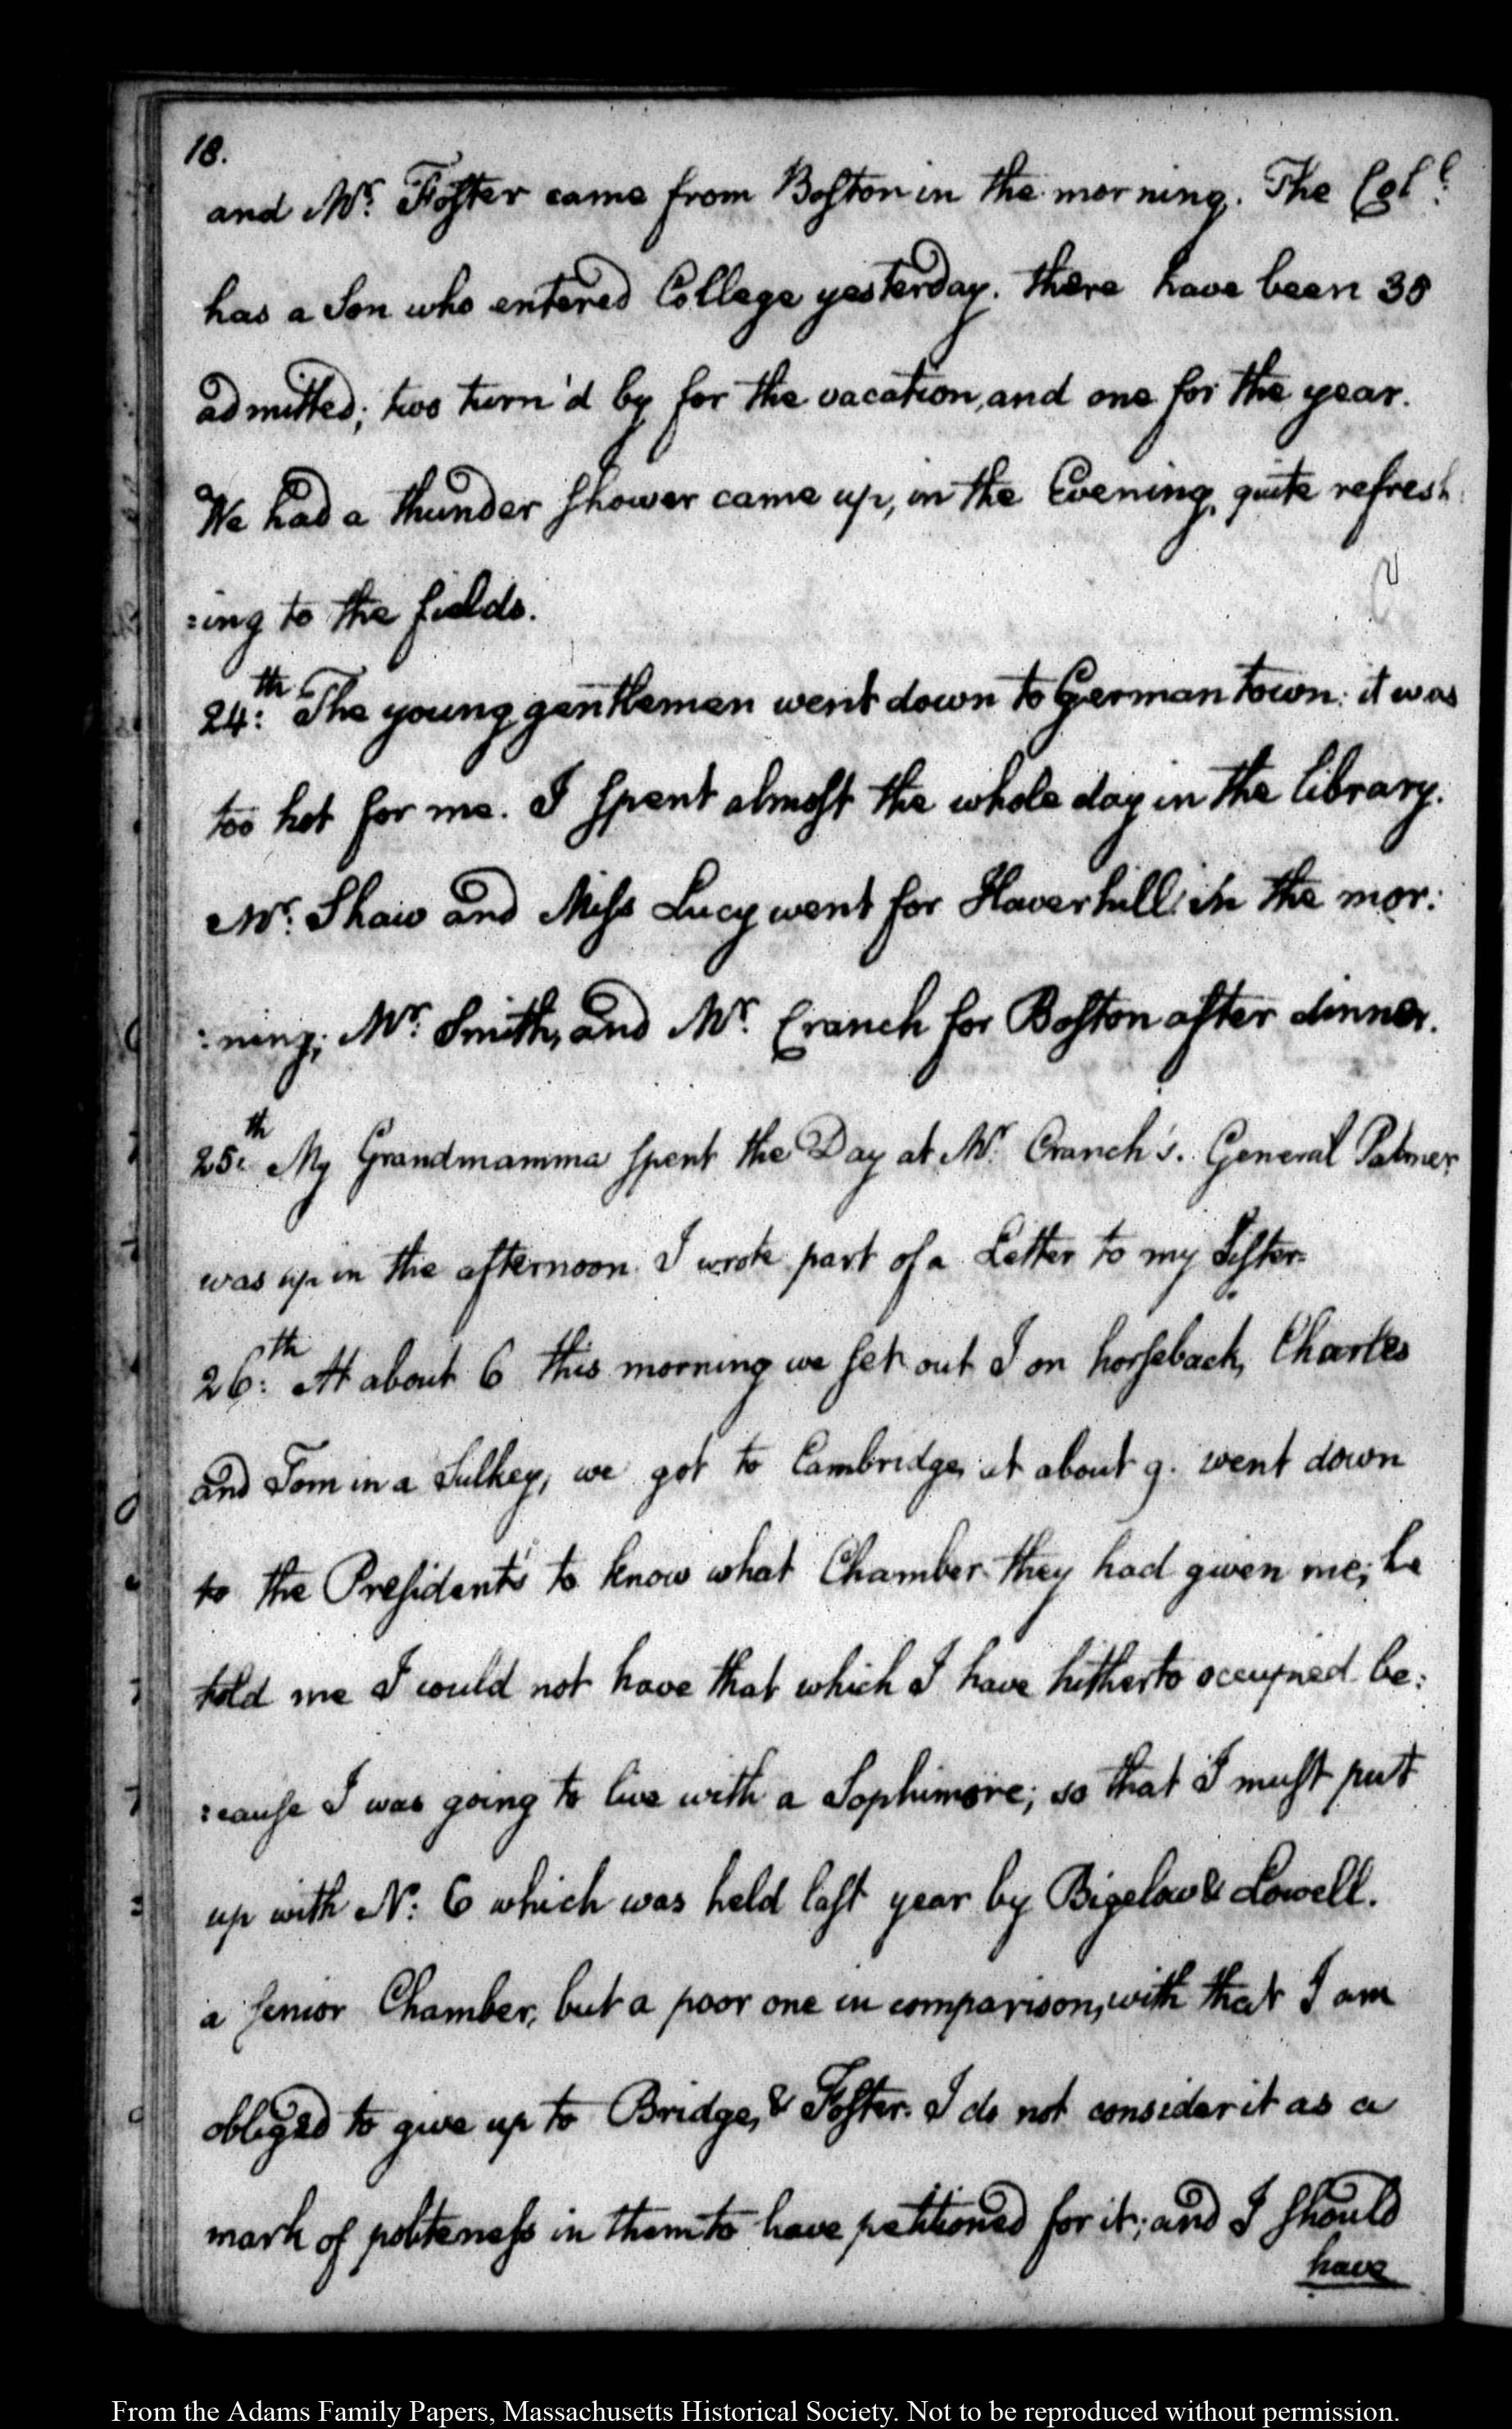 18.
and Mr. Foster came from Boston in the morning. The Coll:
has a Son who entered College yesterday. there have been 30
admitted; two turn'd by for the vacation, and one for the year.
We had a thunder shower came up, in the Evening, quite refresh
:ing to the fields.
24:th The young gentlemen went down to Germantown: it was
too hot for me. I spent almost the whole day in the library.
Mr. Shaw and Miss Lucy went for Haverhill in the mor:
:ning; Mr. Smith, and Mr. Cranch for Boston after dinner.
25:th My Grandmamma spent the Day at Mr. Cranch's. General Palmer
was up in the afternoon I wrote part of a Letter to my Sister.
26:th At about 6 this morning we set out I on horseback, Charles
and Tom in a Sulkey, we got to Cambridge, at about 9. went down
to the President's to know what Chamber they had given me; he
told me I could not have that which I have hitherto occupied be:
:cause I was going to live with a Sophimore; so that I must put
up with N: 6 which was held last year by Bigelow & Lowell.
a senior Chamber, but a poor one in comparison, with that I am
obliged to give up to Bridge, & Foster. I do not consider it as a
mark of politeness in them to have petitioned for it; and I should
have
From the Adams Family Papers, Massachusetts Historical Society. Not to be reproduced without permission.